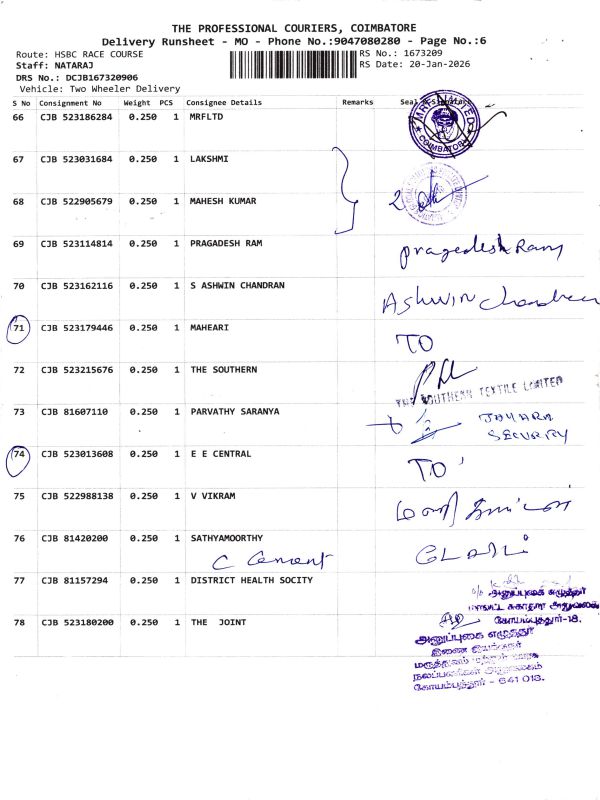 THE PROFESSIONAL COURIERS, COIMBATORE
Delivery Runsheet - MO - Phone No.:9047080280 - Page No.:6
Route: HSBC RACE COURSE
RS No.: 1673209
Staff: NATARAJ
RS Date: 20-Jan-2026
DRS No.: DCJB167320906
Vehicle: Two Wheeler Delivery
S No Consignment No Weight PCS Consignee Details Remarks Seal & Signature
66 CJB 523186284 0.250 1 MRFLTD
MRF LIMITED COIMBATORE
67 CJB 523031684 0.250 1 LAKSHMI
68 CJB 522905679 0.250 1 MAHESH KUMAR
2
69 CJB 523114814 0.250 1 PRAGADESH RAM
Pragadesh Ram
70 CJB 523162116 0.250 1 S ASHWIN CHANDRAN
Ashwin Chandran
71 CJB 523179446 0.250 1 MAHEARI
TO
72 CJB 523215676 0.250 1 THE SOUTHERN
THE SOUTHERN TEXTILE LIMITED
73 CJB 81607110 0.250 1 PARVATHY SARANYA
SECURITY
74 CJB 523013608 0.250 1 E E CENTRAL
TO
75 CJB 522988138 0.250 1 V VIKRAM
76 CJB 81420200 0.250 1 SATHYAMOORTHY
C Cement
77 CJB 81157294 0.250 1 DISTRICT HEALTH SOCITY
அனுப்புகை எழுத்தர்
மாவட்ட சுகாதார அலுவலகம்
கோயம்புத்தூர்-18.
78 CJB 523180200 0.250 1 THE JOINT
அனுப்புகை எழுத்தர்
இணை இயக்குநர்
மருத்துவம் மற்றும் ஊரக
நலப்பணிகள் அலுவலகம்
கோயம்புத்தூர் - 641 018.